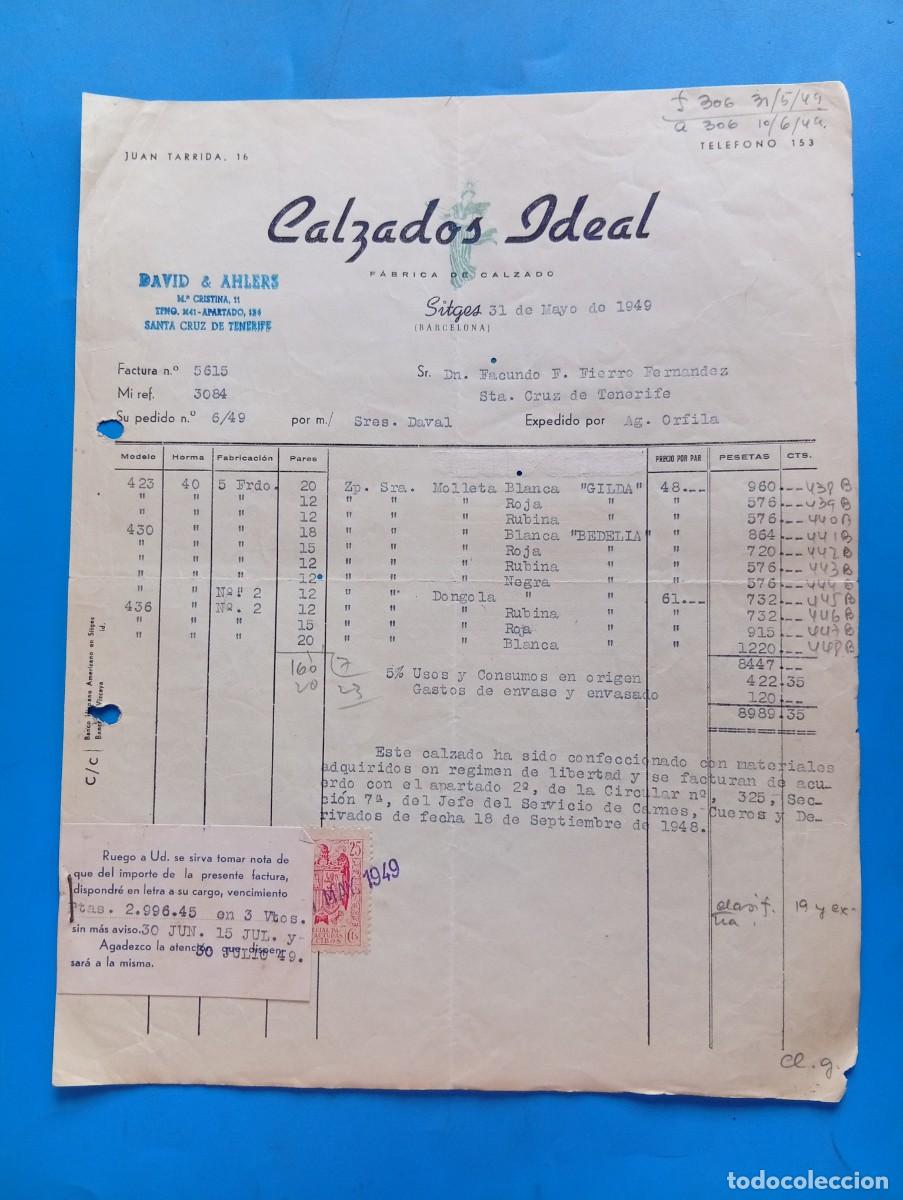 f 306 31/5/49
a 306 10/6/49.
JUAN TARRIDA, 16
TELEFONO 153
Calzados Ideal
FÁBRICA DE CALZADO
DAVID & AHLERS
M.ª CRISTINA, 11
TFNO. 2641 - APARTADO, 134
SANTA CRUZ DE TENERIFE
Sitges 31 de Mayo de 1949
(BARCELONA)
Factura n.º 5615
Sr. Dn. Facundo F. Fierro Fernandez
Mi ref. 3084
Sta. Cruz de Tenerife
Su pedido n.º 6/49 por m./ Sres. Daval Expedido por Ag. Orfila
Modelo Horma Fabricación Pares PRECIO POR PAR PESETAS CTS.
423 40 5 Frdo. 20 Zp. Sra. Molleta Blanca "GILDA" 48.-- 960.-- 438 B
" " " 12 " " " Roja " " 576.-- 439 B
" " " 12 " " " Rubina " " 576.-- 440 B
430 " " 18 " " " Blanca "BEDELIA" " 864.-- 441 B
" " " 15 " " " Roja " " 720.-- 442 B
" " " 12 " " " Rubina " " 576.-- 443 B
" " " 12 " " " Negra " " 576.-- 444 B
" " Nº " 2 12 " " Dongola " " 61.-- 732.-- 445 B
436 " Nº. 2 12 " " " Rubina " " 732.-- 446 B
" " " 15 " " " Roja " " 915.-- 447 B
" " " 20 " " " Blanca " " 1220.-- 448 B
160 7 8447.--
20 23 5% Usos y Consumos en origen 422.35
Gastos de envase y envasado 120.--
8989.35
C/c
Banco Hispano Americano en Sitges
Banco Vizcaya id.
Este calzado ha sido confeccionado con materiales
adquiridos en regimen de libertad y se facturan de acu-
erdo con el apartado 2º, de la Circular nº, 325, Sec-
ción 7ª, del Jefe del Servicio de Carnes, Cueros y De-
rivados de fecha 18 de Septiembre de 1948.
Ruego a Ud. se sirva tomar nota de
que del importe de la presente factura,
dispondré en letra a su cargo, vencimiento
Ptas. 2.996.45 en 3 Vtos.
sin más aviso. 30 JUN. 15 JUL. y-
Agadezco la atención que dispen-
30 JULIO 49.
sará a la misma.
25
MAY. 1949
FACTURAS
Cts
clasif. 19 y ex-
tia.
Cl. g.
todocoleccion